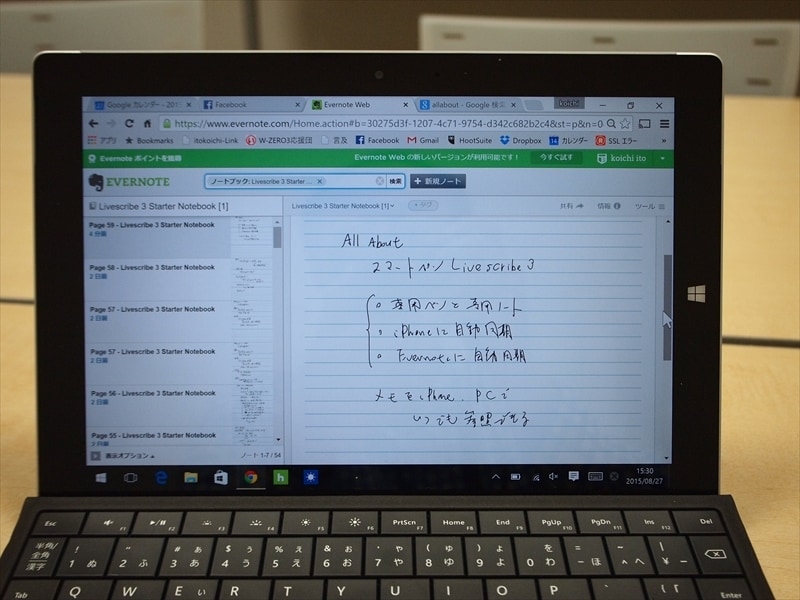 Google カレンダー - 201
Facebook
Evernote Web
allabout - Google 検索
koichi
https://www.evernote.com/Home.action#b=30275d3f-1207-4c71-9754-d342c682b2c4&st=p&n=0
アプリ
Bookmarks
itokoichi-Link
W-ZERO3応援団
言及
Facebook
Gmail
HootSuite
Dropbox
カレンダー
SSL エラー
Evernote ポイントを獲得
Evernote Web の新しいバージョンが利用可能です！
今すぐ試す
koichi ito
EVERNOTE
ノートブック: Livescribe 3 Starter ...
検索
+ 新規ノート
Livescribe 3 Starter Notebook [1]
Livescribe 3 Starter Notebook [1]
+ タグ
共有
情報
ツール
Page 59 - Livescribe 3 Starter Notebook
4 分前
Page 58 - Livescribe 3 Starter Notebook
2 日前
Page 57 - Livescribe 3 Starter Notebook
2 日前
Page 57 - Livescribe 3 Starter Notebook
2 日前
Page 56 - Livescribe 3 Starter Notebook
2 日前
Page 55 - Livescribe 3 Starter Notebook
表示オプション
ノート 1-7 / 54
All About
スマートペン Livescribe 3
専用ペンと専用ノート
iPhoneに自動同期
Evernoteに自動同期
メモを iPhone、PCで
いつでも
15:30
2015/08/27
Esc
F1
F2
F3
F4
F5
F6
PrtScn F7
Home F8
End F9
PgUp F10
PgDn F11
Ins F12
Del
半角/全角 漢字
! 1 ぬ
" 2 ふ
# ぁ 3 あ
$ ぅ 4 う
% ぇ 5 え
& ぉ 6 お
' ゃ 7 や
( ゅ 8 ゆ
) ょ 9 よ
を 0 わ
= - ほ
~ ^ へ
| ¥ ー
Tab
Q
W
E ぃ
R
T
Y
U
I
O
P
Enter